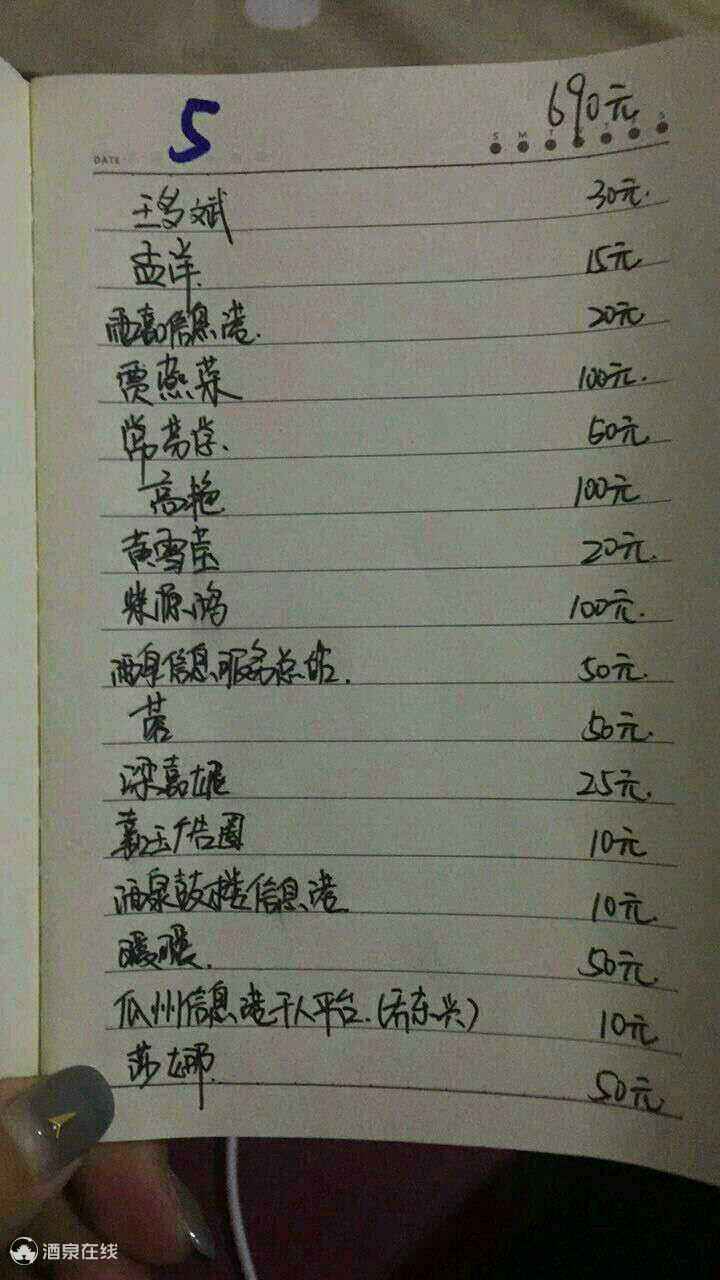 5
690元
DATE
S M T W T F S
王多斌 30元.
孟洋. 15元
酒嘉信息港. 20元
贾燕菜 100元.
常芳学. 50元
高艳 100元
黄雪莹 20元.
柴源鸿 100元.
酒泉信息服务总站. 50元.
茜 50元.
梁嘉雄 25元.
嘉玉广告圈 10元
酒泉鼓楼信息港 10元.
暖暖. 50元.
瓜州信息港千人平台.(乔东兴) 10元
莎娜. 50元
酒泉在线